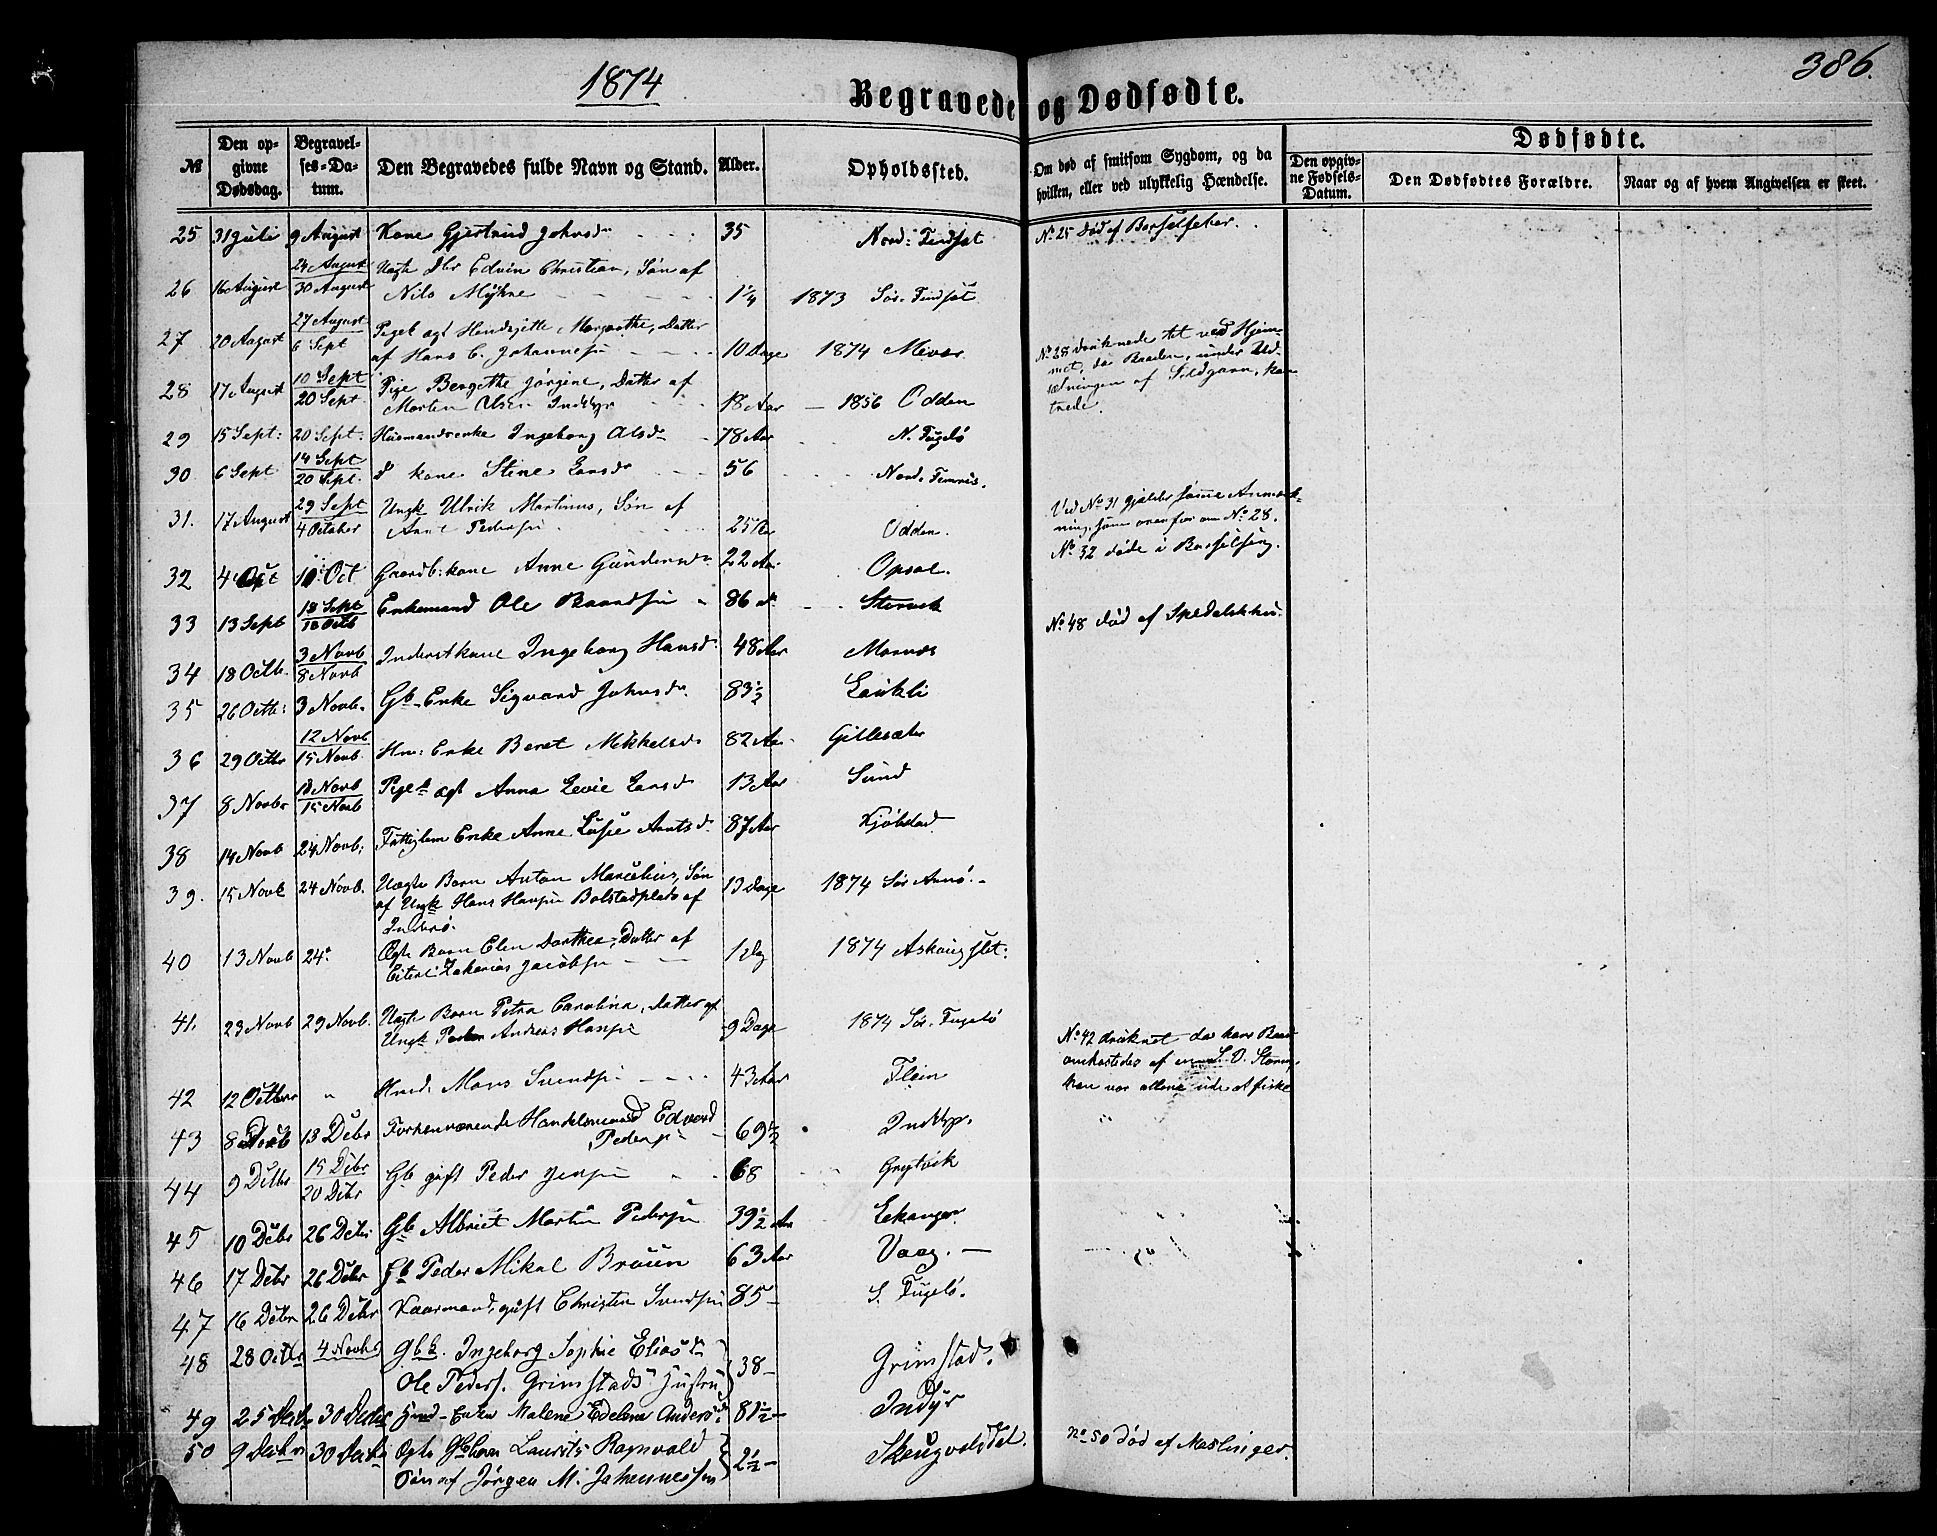 1874
386.
Begravede og Dødfødte.
№
Den opgivne Dødsdag.
Begravelses-Datum.
Den Begravedes fulde Navn og Stand.
Alder.
Opholdssted.
Om død af smitsom Sygdom, og da hvilken, eller ved ulykkelig Hændelse.
Dødfødte.
Den opgivne Fødsels-Datum.
Den Dødfødtes Forældre.
Naar og af hvem Angivelsen er skeet.
25 31 Juli 9 August Kone Gjertrud Johnsdr 35 Nord: Findset No 25 død af Barselfeber.
26 16 August 24 August 30 August Uægte Edvin Christian, Søn af
Nils Myhre 1 1/4 1873 Sør. Findset
27 20 August 27 August 6 Sept Pige Margrethe, Datter
af Hans C. Johannesen 10 Dage 1874 Mevær
No 28 druknede tet ved Hjemmet, da Baaden, under Udsætningen af Sildgarn, kantrede.
28 17 August 10 Sept 20 Sept Pige Bergethe Jørgine, Datter af
Morten Olsen Inddyr 18 Aar 1856 Odden
29 15 Sept: 20 Sept: Huusmandsenke Ingeborg Olsdr 78 Aar N. Fugelø
30 6 Sept 14 Sept 20 Sept. kone Stine Larsdr 56 Nord.
31. 17 August 29 Sept 4 October Ungk Ulrik Martinus, Søn af
Arnt Pedersen 25 Aar Odden.
Ved No 31 gjælder samme Anmærkning, som ovenfor om No 28.
32 4 Oct 10 Oct Gaardb: kone Anne Gundersdr 22 Aar Opsal No 32 døde i Barselseng.
33 13 Sept 18 Sept 18 Octb Enkemand Ole Baardsen 86 Storvik
No 48 død af Spedalskhed.
34 18 Octb. 3 Novb 8 Novb Inderstkone Ingeborg Hansdr 48 Aar Mornæs
35 26 Octb: 3 Novb. Gb. Enke Sigvard Johnsdr 83 1/2
36 29 Octbr 12 Novb 15 Novb. Hm: Enke Beret Mikkelsdr 82 Aar Gillesæter
37 8 Novbr 10 Novb 15 Novb Pige Anna Levie Larsdr 13 Aar Sund
38 14 Novb 24 Novb: Fattiglem Enke Anne Arntsdr 87 Aar Kjølstad
39. 15 Novb 24 Novb. Uægte Barn Anton Marcelius, Søn
af Ungk Hans Hansen Bolstadplads af
Inderø. 13 Dage 1874 Sør Arnø.
40 13 Novb 24 Ægte Barn Elen Dorthea, Datter af
Zakarias Jacobsen 1 Dag 1874
41. 23 Novb 29 Novb. Uægte Barn Petra Carolina, Datter af
Ungk Peder Andreas Hansen 9 Dage 1874 Sør. Fugelø
42 12 Octbr " Hmd: Mons Svendsen 43 Aar Flein
No 42 druknet da hans Baad omkastedes af S. O. Storm, han var allene ude at fiske
43 8 13 Debr Forhenværende Handelsmand Edvard
Pedersen 69 1/2 Inddyr.
44 9 Debr 15 Debr 20 Debr Gb gift Peder Jensen 68 Grytvik
45 10 Debr 26 Debr Gb Albriet Martin Pedersen 39 1/2 Aar Ekanger
46 17 Debr 26 Debr Peder Mikal Bruun 63 Aar Vaag.
47 16 Debr 26 Debr Kaarmand, gift Christen Svendsen 85 S. Fugelø.
48 28 Octbr 4 Novbr Gbk. Ingeborg Sophie Eliasdr
Ole Peders. Grimstads Hustru 38 Grimstad.
49 25 Decbr 30 Decbr Enke Malene Edelene Andersdr 81 1/2 Indyr
50 9 Decbr 30 Decbr Ægte Laurits Ragnvald
Søn af Jørgen M. Johannessen 2 1/2 Skaugvoldstet. No 50 død af Mæslinger.